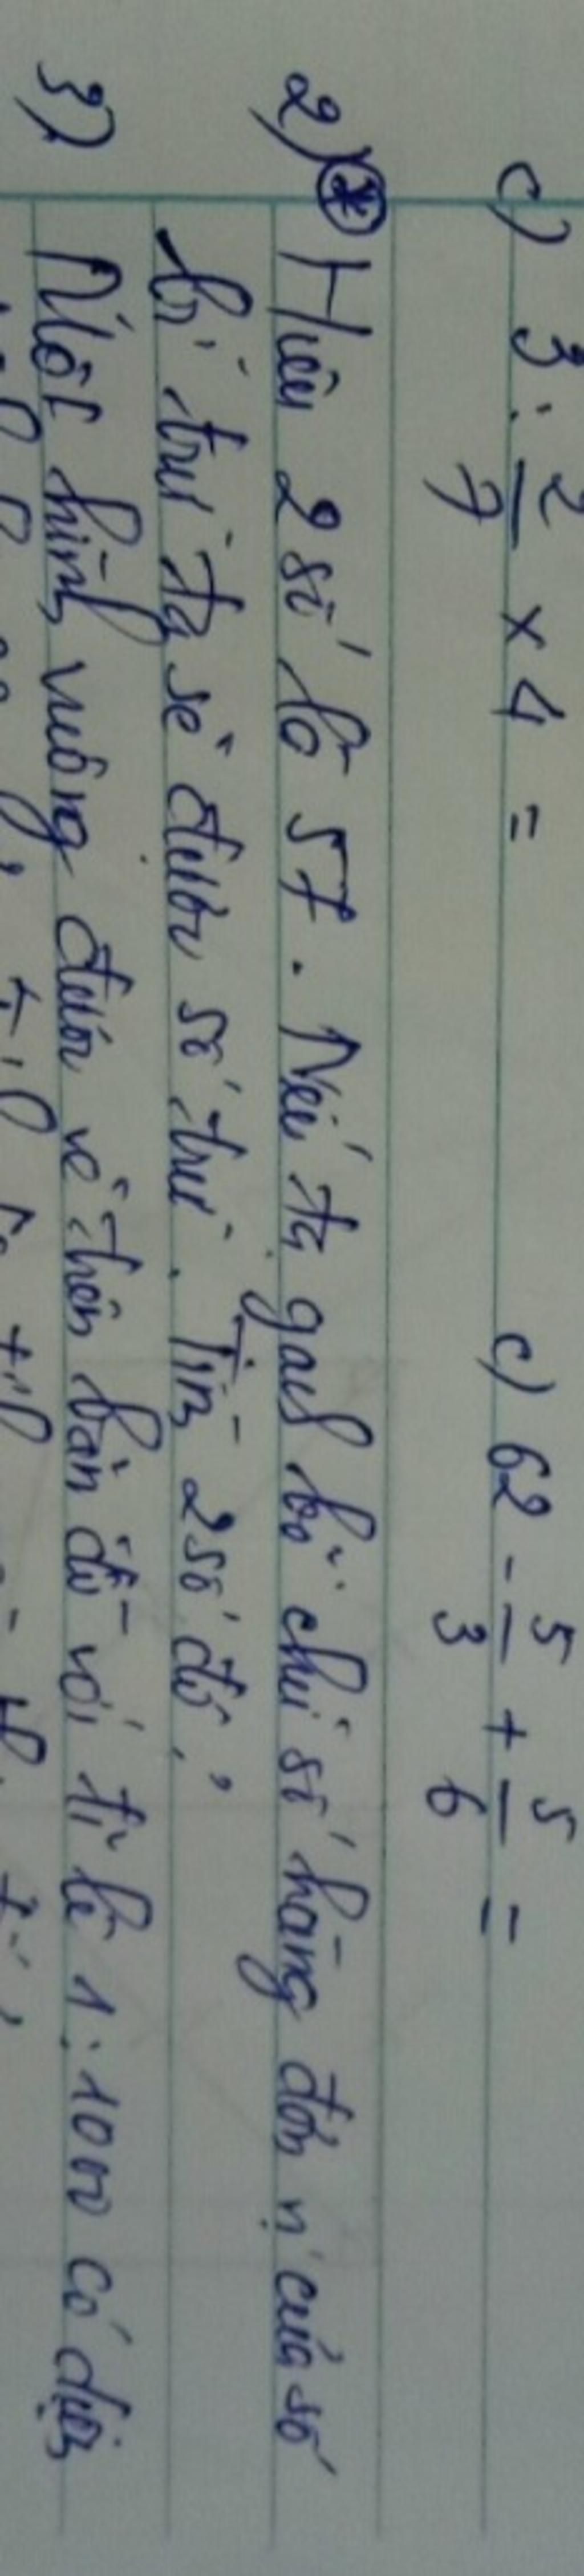 c) 3 : 2/7 × 4 = c) 62 - 5/3 + 5/6 =
2) * Hiệu 2 số là 57. Nếu ta gạch bỏ chữ số hàng đơn vị của số
bị trừ ta sẽ được số trừ. Tìm 2 số đó?
3) Một hình vuông được vẽ trên bản đồ với tỉ lệ 1:1000 có diện